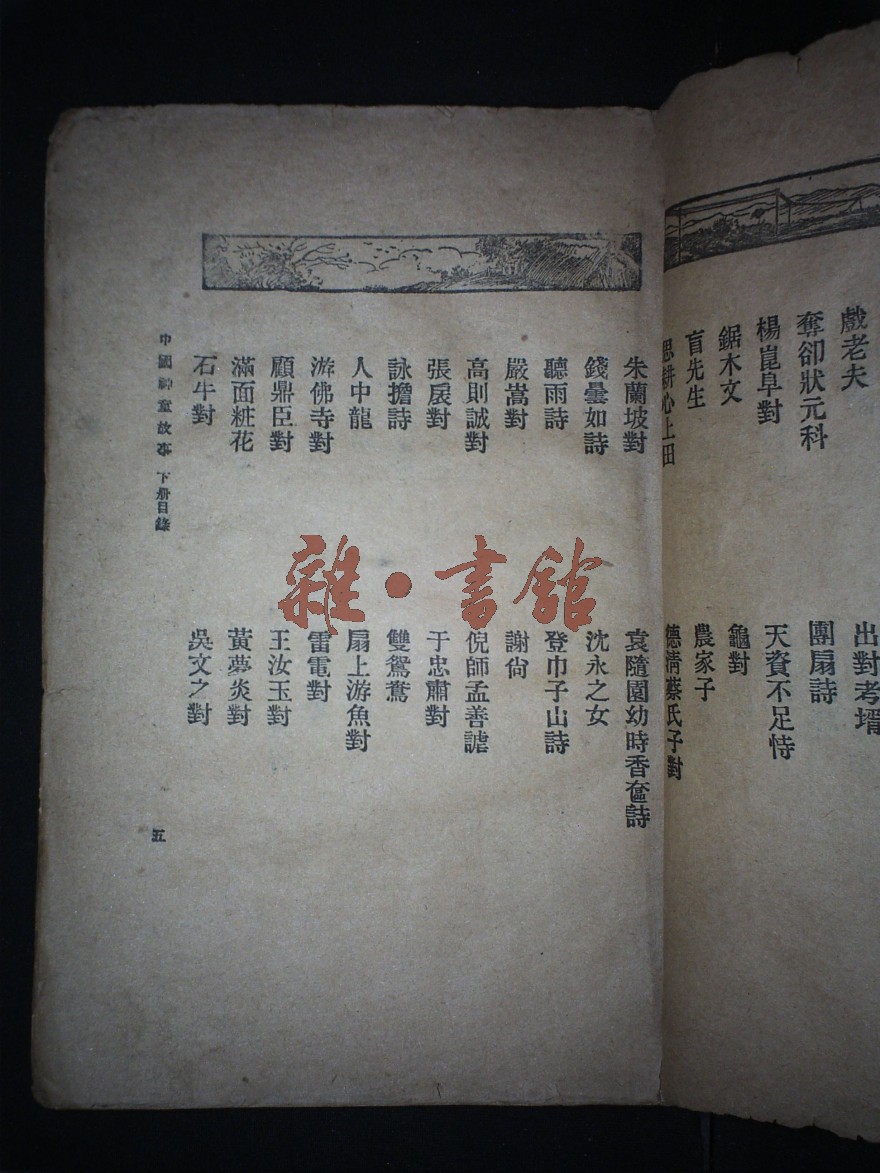 戲老夫
奪卻狀元科
楊崑阜對
鋸木文
盲先生
思耕心上田
出對考壻
團扇詩
天資不足恃
龜對
農家子
德清蔡氏子對
朱蘭坡對
錢曇如詩
聽雨詩
嚴嵩對
高則誠對
張扆對
詠擔詩
人中龍
游佛寺對
顧鼎臣對
滿面粧花
石牛對
袁隨園幼時香奩詩
沈永之女
登巾子山詩
謝尙
倪師孟善謔
于忠肅對
雙鴛鴦
扇上游魚對
雷電對
王汝玉對
黃夢炎對
吳文之對
中國神童故事 下册目錄
五
雜·書館